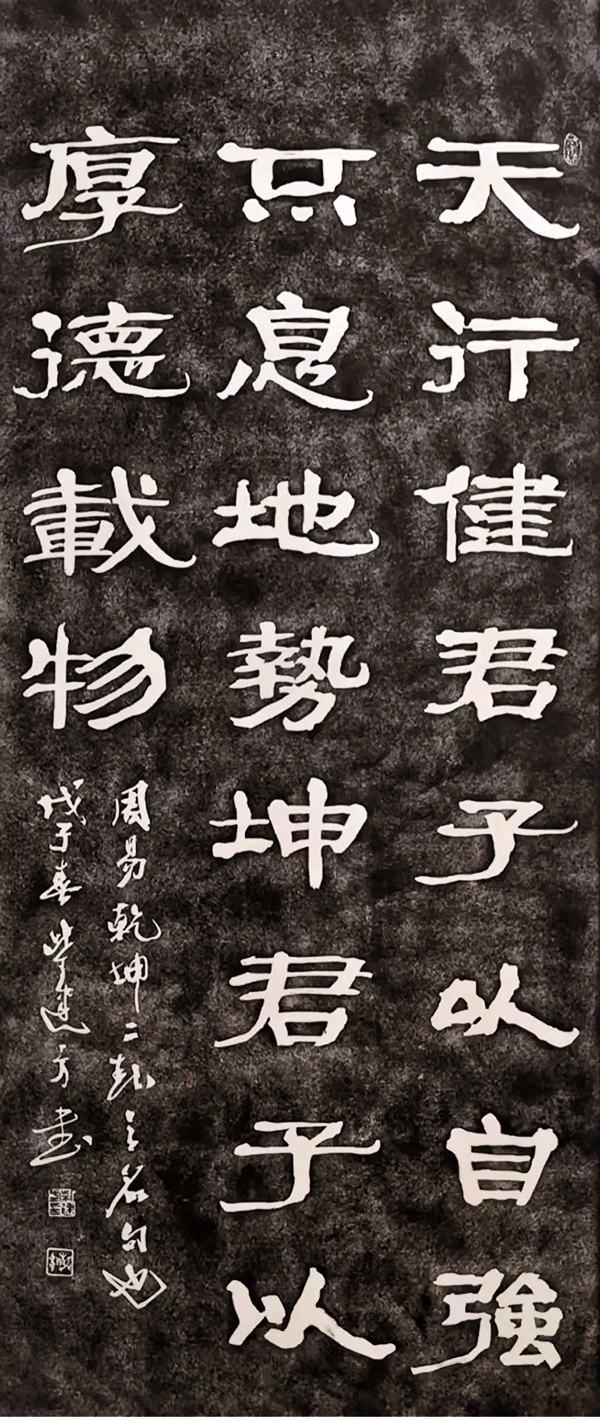 天行健君子以自強
不息地勢坤君子以
厚德載物
周易乾坤二卦之名句也
戊子春柴建方書